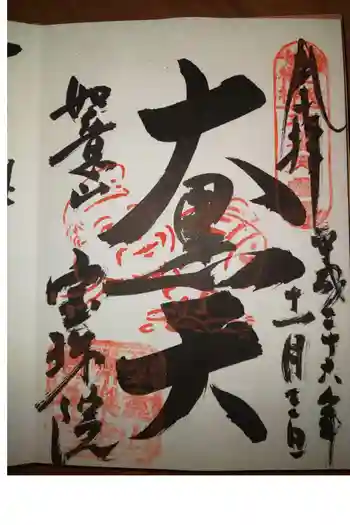 奉拝
平成二十六年
十一月三日
大黒天
如意山
宝珠院